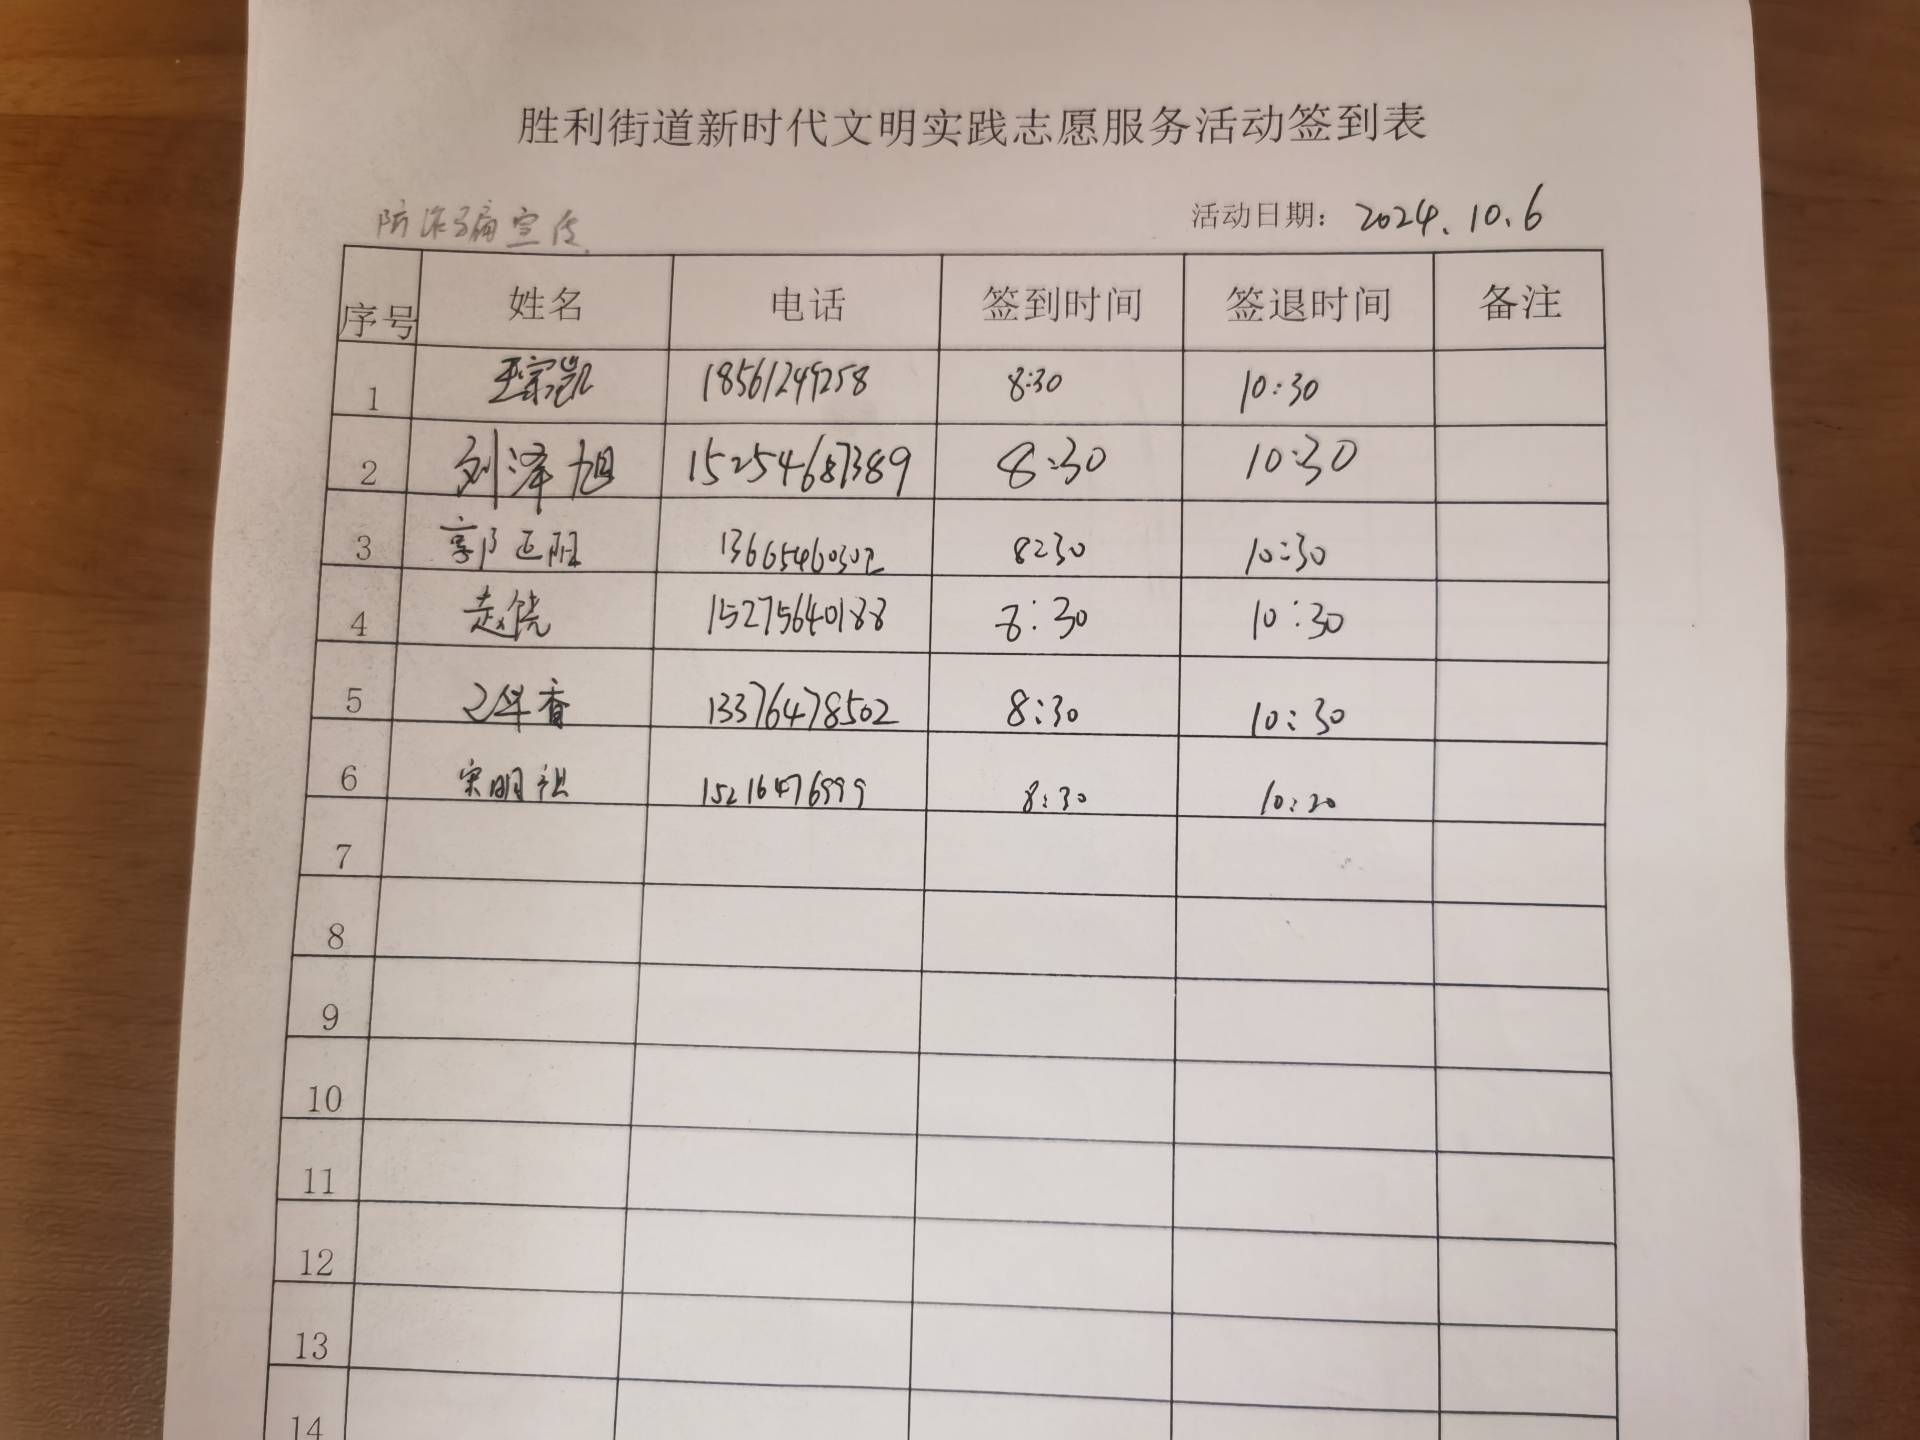 胜利街道新时代文明实践志愿服务活动签到表
防诈骗宣传 活动日期: 2024.10.6
序号 姓名 电话 签到时间 签退时间 备注
1 18561249258 8:30 10:30
2 刘泽旭 15254687389 8:30 10:30
3 13665460302 8:30 10:30
4 赵饶 15275640188 8:30 10:30
5 13376478502 8:30 10:30
6 宋明祖 15216476999 8:30 10:20
7
8
9
10
11
12
13
14